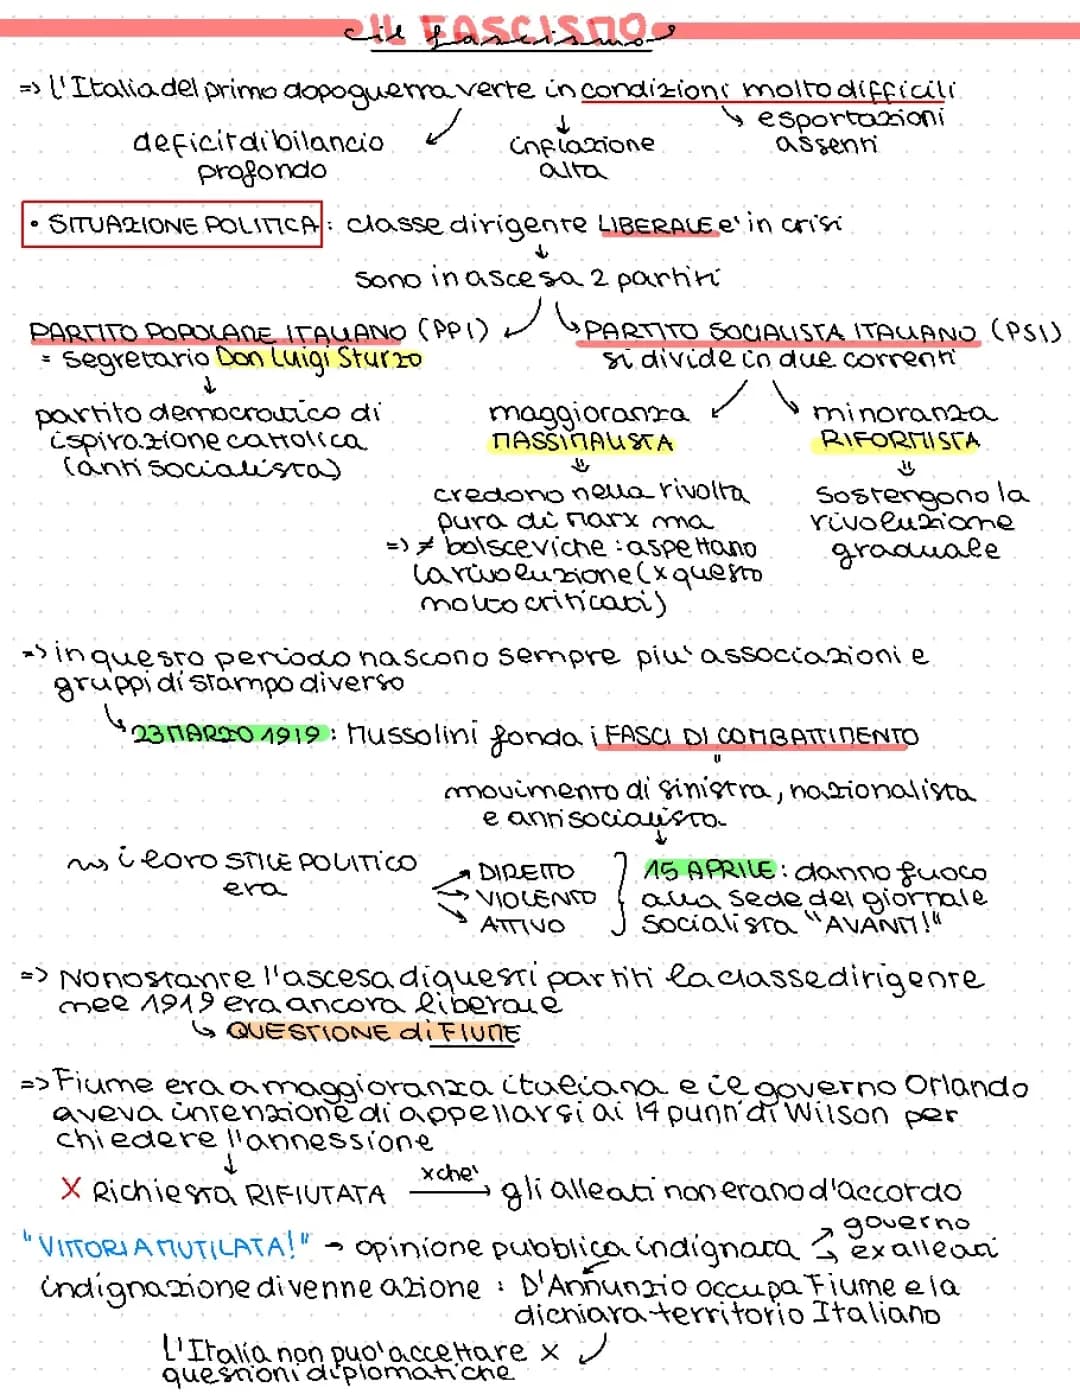 IL FASCISMO
il fascismo
=> l'Italia del primo dopoguerra verte in condizioni molto difficili
deficit di bilancio profondo
inflazione alta
esportazioni assenti
• SITUAZIONE POLITICA: classe dirigente LIBERALE e' in crisi
sono in ascesa 2 partiti
PARTITO POPOLARE ITALIANO (PPI)
= segretario Don Luigi Sturzo
partito democratico di
ispirazione cattolica
(anti socialista)
PARTITO SOCIALISTA ITALIANO (PSI)
si divide in due correnti
maggioranza
MASSIMALISTA
credono nella rivolta
pura di Marx ma
=> ≠ bolsceviche: aspettano
la rivoluzione (x questo
molto criticati)
minoranza
RIFORMISTA
sostengono la
rivoluzione
graduale
=> in questo periodo nascono sempre piu' associazioni e
gruppi di stampo diverso
23 MARZO 1919: Mussolini fonda i FASCI DI COMBATTIMENTO
movimento di sinistra, nazionalista
e antisocialista
i loro STILE POLITICO
era
DIRETTO
VIOLENTO
ATTIVO
15 APRILE: danno fuoco
alla sede del giornale
socialista "AVANTI!"
=> Nonostante l'ascesa di questi partiti la classe dirigente
nel 1919 era ancora liberale
QUESTIONE di FIUME
=> Fiume era a maggioranza italiana e il governo Orlando
aveva intenzione di appellarsi ai 14 punti di Wilson per
chiedere l'annessione
X Richiesta RIFIUTATA xche' gli alleati non erano d'accordo
"VITTORIA MUTILATA!" → opinione pubblica indignata
governo
ex alleati
indignazione divenne azione : D'Annunzio occupa Fiume e la
dichiara territorio Italiano
L'Italia non puo' accettare x
questioni diplomatiche